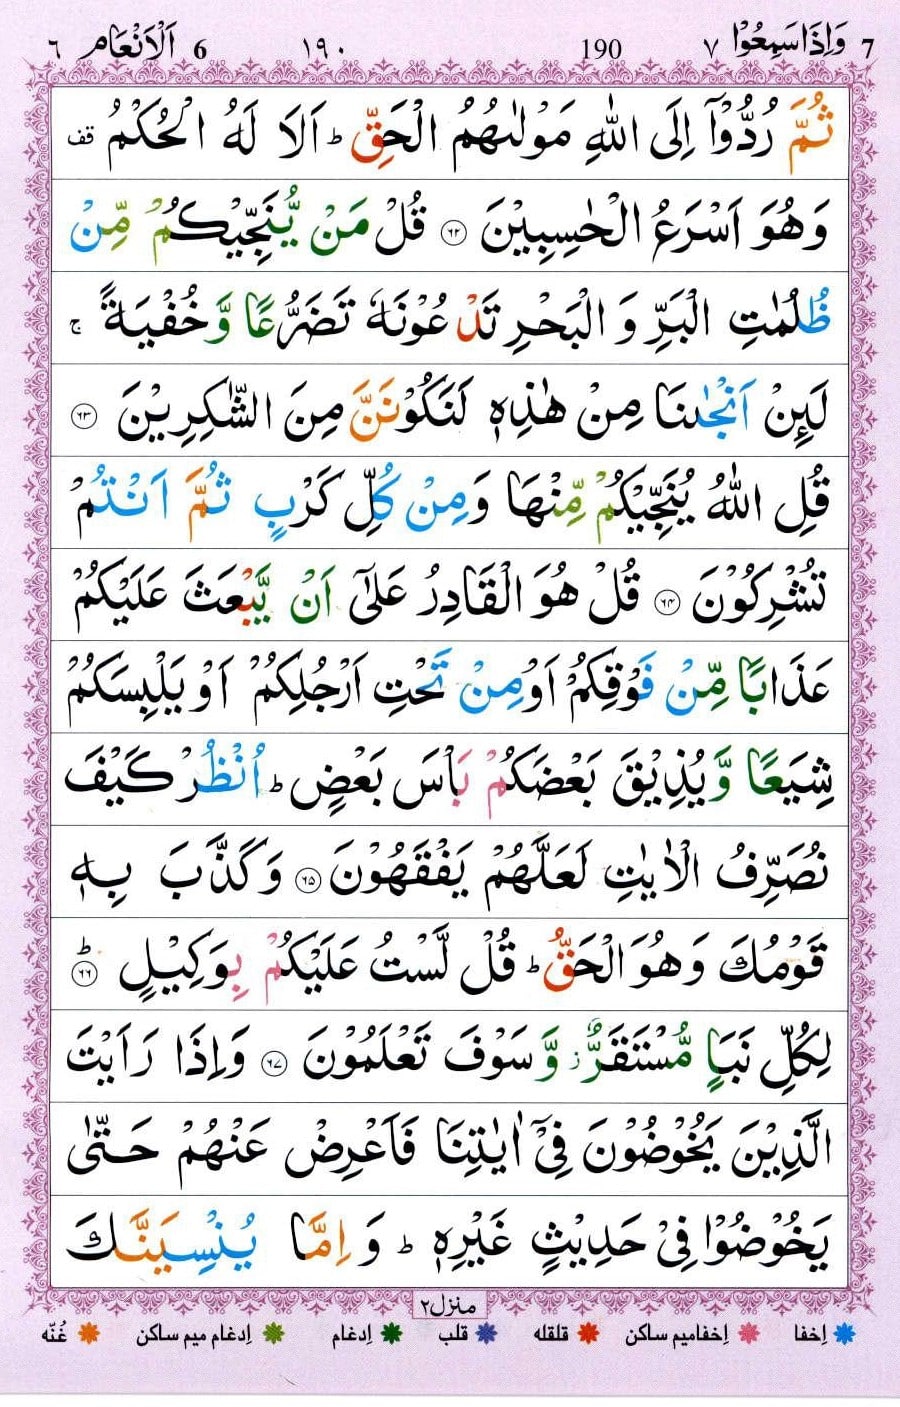 7 وَاِذَا سَمِعُوْا ٧ 190 ١٩٠ 6 اَلْاَنْعَام ٦
ثُمَّ رُدُّوْۤا اِلَى اللّٰهِ مَوْلٰىهُمُ الْحَقِّ ؕ اَلَا لَهُ الْحُكْمُ قف
وَهُوَ اَسْرَعُ الْحٰسِبِيْنَ ۝۶۲ قُلْ مَنْ يُّنَجِّيْكُمْ مِّنْ
ظُلُمٰتِ الْبَرِّ وَ الْبَحْرِ تَدْعُوْنَهٗ تَضَرُّعًا وَّخُفْيَةً ۚ
لَىِٕنْ اَنْجٰىنَا مِنْ هٰذِهٖ لَنَكُوْنَنَّ مِنَ الشّٰكِرِيْنَ ۝۶۳
قُلِ اللّٰهُ يُنَجِّيْكُمْ مِّنْهَا وَمِنْ كُلِّ كَرْبٍ ثُمَّ اَنْتُمْ
تُشْرِكُوْنَ ۝۶۴ قُلْ هُوَ الْقَادِرُ عَلٰۤى اَنْ يَّبْعَثَ عَلَيْكُمْ
عَذَابًا مِّنْ فَوْقِكُمْ اَوْمِنْ تَحْتِ اَرْجُلِكُمْ اَوْ يَلْبِسَكُمْ
شِيَعًا وَّيُذِيْقَ بَعْضَكُمْ بَاْسَ بَعْضٍ ؕ اُنْظُرْ كَيْفَ
نُصَرِّفُ الْاٰيٰتِ لَعَلَّهُمْ يَفْقَهُوْنَ ۝۶۵ وَكَذَّبَ بِهٖ
قَوْمُكَ وَهُوَ الْحَقُّ ؕ قُلْ لَّسْتُ عَلَيْكُمْ بِوَكِيْلٍ ؕ۝۶۶
لِكُلِّ نَبَاٍ مُّسْتَقَرٌّ ؗ وَّسَوْفَ تَعْلَمُوْنَ ۝۶۷ وَاِذَا رَاَيْتَ
الَّذِيْنَ يَخُوْضُوْنَ فِيْۤ اٰيٰتِنَا فَاَعْرِضْ عَنْهُمْ حَتّٰى
يَخُوْضُوْا فِيْ حَدِيْثٍ غَيْرِهٖ ؕ وَ اِمَّا يُنْسِيَنَّكَ
منزل٢
اِخفا اِخفامیم ساکن قلقله قلب اِدغام اِدغام میم ساکن غُنّه